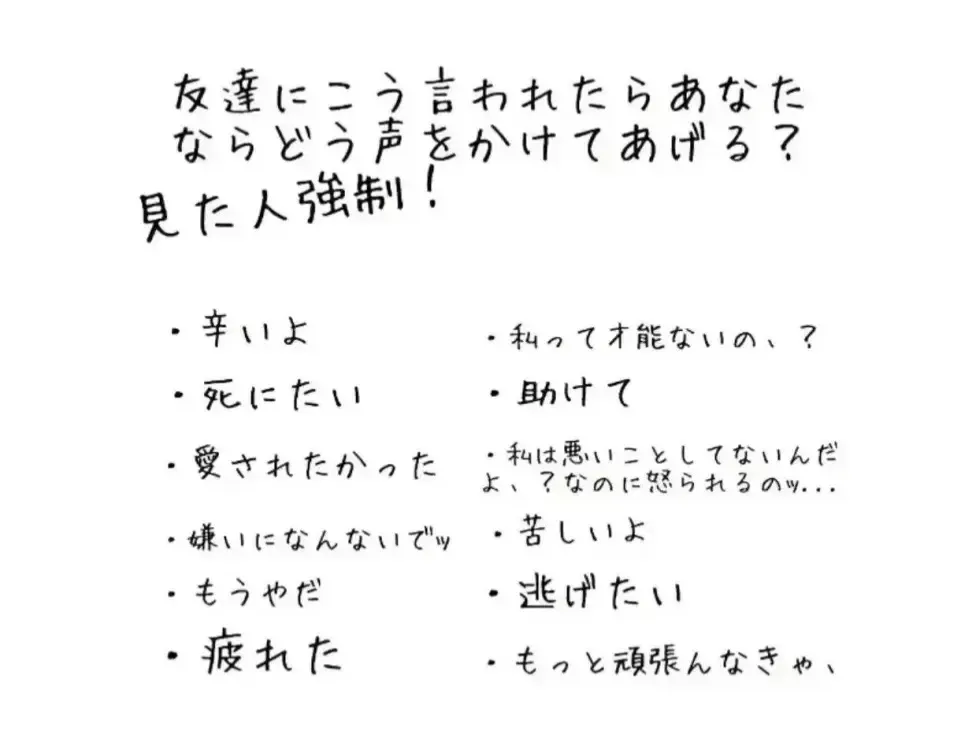 友達にこう言われたらあなた
ならどう声をかけてあげる？
見た人強制！
・辛いよ
・死にたい
・愛されたかった
・嫌いになんないでッ
・もうやだ
・疲れた
・私って才能ないの、？
・助けて
・私は悪いことしてないんだ
よ、？なのに怒られるのッ...
・苦しいよ
・逃げたい
・もっと頑張んなきゃ、